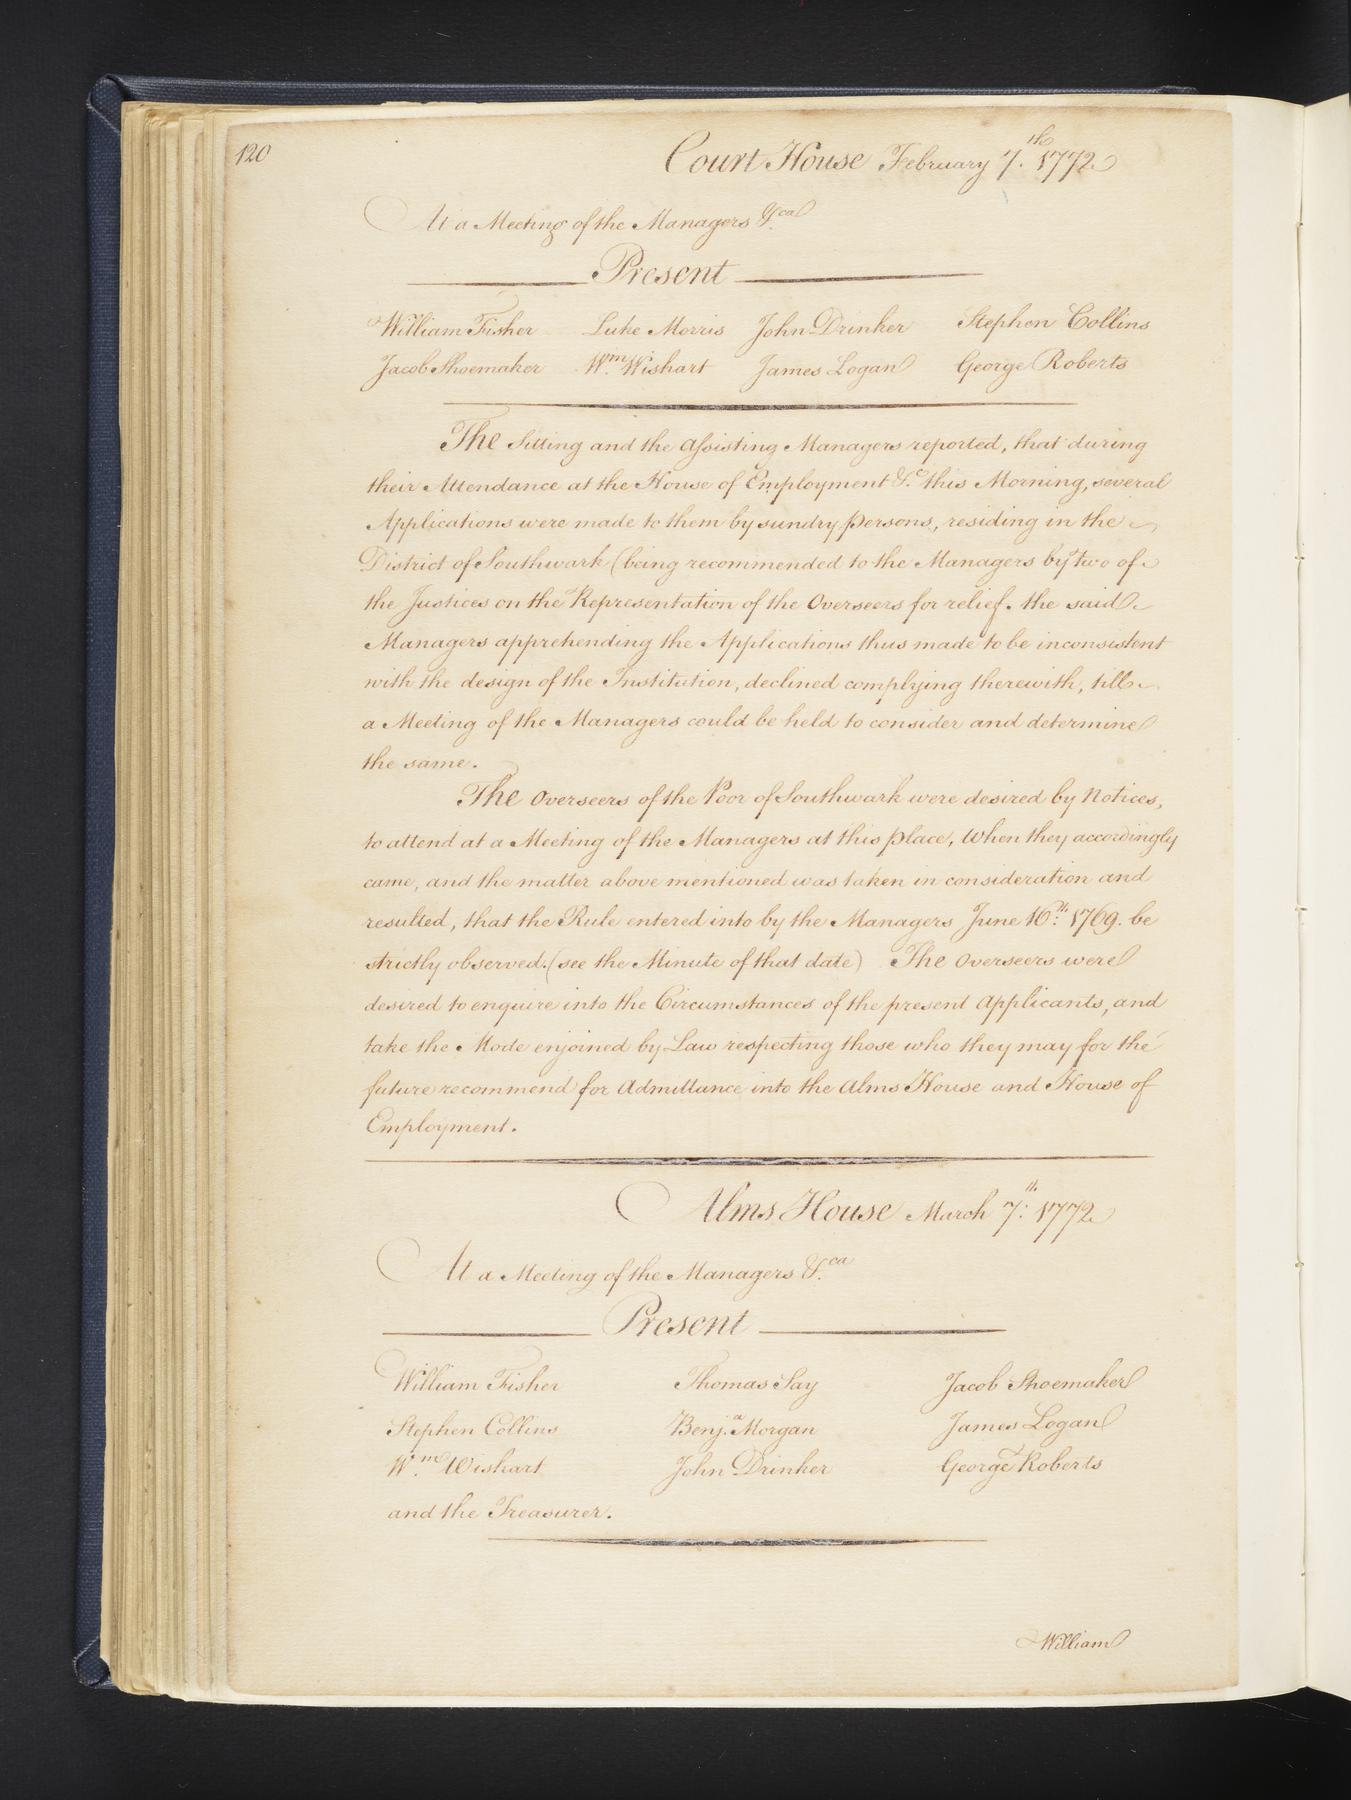 120
Court House February 7.th 1772
At a Meeting of the Managers &.ca
Present
William Fisher Luke Morris John Drinker Stephen Collins
Jacob Shoemaker Wm. Wishart James Logan George Roberts
The Sitting and the Assisting Managers reported, that during
their Attendance at the House of Employment &.c this Morning, several
Applications were made to them by sundry persons, residing in the
District of Southwark (being recommended to the Managers by two of
the Justices on the Representation of the Overseers for relief. the said
Managers apprehending the Applications thus made to be inconsistent
with the design of the Institution, declined complying therewith, till
a Meeting of the Managers could be held to consider and determine
the same.
The Overseers of the Poor of Southwark were desired by Notices,
to attend at a Meeting of the Managers at this place, When they accordingly
came, and the matter above mentioned was taken in consideration and
resulted, that the Rule entered into by the Managers June 16th: 1769. be
strictly observed. (see the Minute of that date) The Overseers were
desired to enquire into the Circumstances of the present Applicants, and
take the Mode enjoined by Law respecting those who they may for the
future recommend for Admittance into the Alms House and House of
Employment.
Alms House March 7th: 1772
At a Meeting of the Managers &.ca
Present
William Fisher Thomas Say Jacob Shoemaker
Stephen Collins Benj.a Morgan James Logan
W.m Wishart John Drinker George Roberts
and the Treasurer.
William